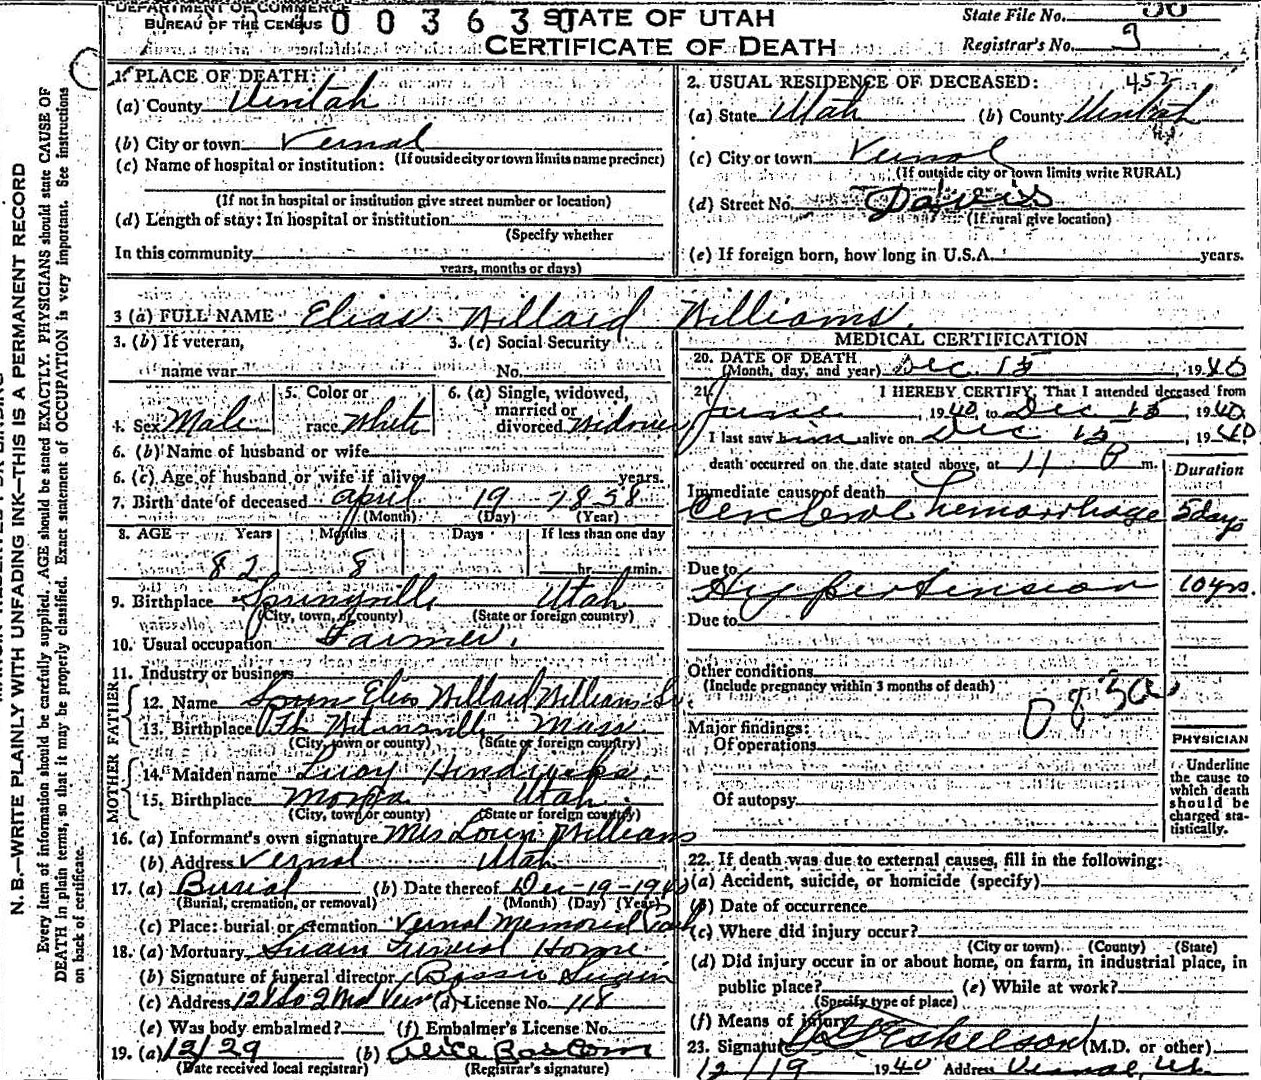 DEPARTMENT OF COMMERCE
BUREAU OF THE CENSUS
003630
STATE OF UTAH
CERTIFICATE OF DEATH
State File No. 36
Registrar's No. 9
N. B.—WRITE PLAINLY WITH UNFADING INK—THIS IS A PERMANENT RECORD
Every item of information should be carefully supplied. AGE should be stated EXACTLY. PHYSICIANS should state CAUSE OF
DEATH in plain terms, so that it may be properly classified. Exact statement of OCCUPATION is very important. See instructions
on back of certificate.
1. PLACE OF DEATH:
(a) County Uintah
(b) City or town Vernal
(If outside city or town limits name precinct)
(c) Name of hospital or institution:
(If not in hospital or institution give street number or location)
(d) Length of stay: In hospital or institution
(Specify whether
In this community
years, months or days)
2. USUAL RESIDENCE OF DECEASED: 452
(a) State Utah (b) County Uintah
(c) City or town Vernal
(If outside city or town limits write RURAL)
(d) Street No. Davis
(If rural give location)
(e) If foreign born, how long in U.S.A. years.
3 (a) FULL NAME Elias Willard Williams
3. (b) If veteran,
name war
3. (c) Social Security
No.
4. Sex Male
5. Color or
race White
6. (a) Single, widowed,
married or
divorced Widower
6. (b) Name of husband or wife
6. (c) Age of husband or wife if alive years.
7. Birth date of deceased April 19 - 1858
(Month) (Day) (Year)
8. AGE Years Months Days If less than one day
82 8 hr. min.
9. Birthplace Springville Utah
(City, town, or county) (State or foreign country)
10. Usual occupation Farmer.
11. Industry or business
FATHER
12. Name Elias Willard Williams Sr
13. Birthplace Mass
(City, town or county) (State or foreign country)
MOTHER
14. Maiden name Lucy Hendricks.
15. Birthplace Utah.
(City, town or county) (State or foreign country)
16. (a) Informant's own signature Mrs Williams
(b) Address Vernal Utah
17. (a) Burial (b) Date thereof Dec-19-1940
(Burial, cremation, or removal) (Month) (Day) (Year)
(c) Place: burial or cremation Vernal Memorial Park
18. (a) Mortuary Swain Funeral Home
(b) Signature of funeral director Swain
(c) Address (d) License No. 118
(e) Was body embalmed? (f) Embalmer's License No.
19. (a) 12/29 (b) Alice Bascom
(Date received local registrar) (Registrar's signature)
MEDICAL CERTIFICATION
20. DATE OF DEATH
(Month, day, and year) Dec 15, 1940
21. I HEREBY CERTIFY, That I attended deceased from
June, 1940 to Dec 15, 1940.
I last saw him alive on Dec 15, 1940
death occurred on the date stated above, at 11 P m.
Duration
Immediate cause of death
Cerebral hemorrhage 5 days
Due to
Hypertension 10 yrs.
Due to
Other conditions
(Include pregnancy within 3 months of death)
083a
Major findings:
Of operations
Of autopsy
PHYSICIAN
Underline
the cause to
which death
should be
charged sta-
tistically.
22. If death was due to external causes, fill in the following:
(a) Accident, suicide, or homicide (specify)
(b) Date of occurrence
(c) Where did injury occur?
(City or town) (County) (State)
(d) Did injury occur in or about home, on farm, in industrial place, in
public place? (e) While at work?
(Specify type of place)
(f) Means of injury
23. Signature Eskelson (M.D. or other)
12/19 1940 Address Vernal, Ut.